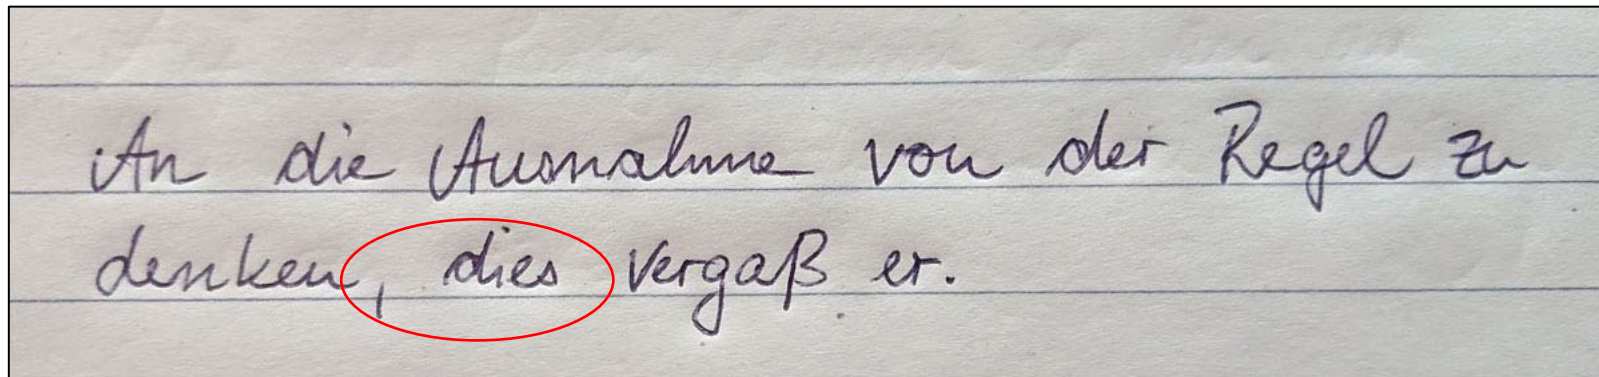 An die Ausnahme von der Regel zu
denken, dies vergaß er.